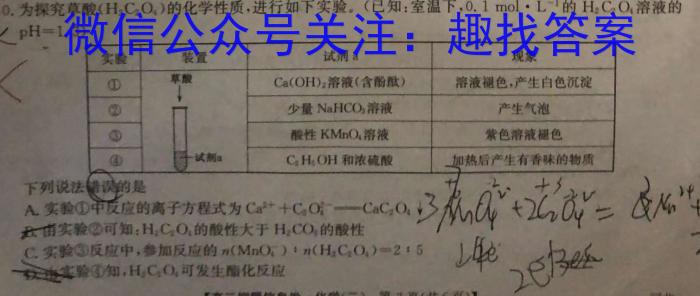 0. 为探究草酸(H₂C₂O₄)的化学性质,进行如下实验。(已知:室温下,0.1 mol·L⁻¹的H₂C₂O₄溶液的
pH=1.
微信公众号关注:趣找答案
实验 装置 试剂a 现象
① 草酸 Ca(OH)₂溶液(含酚酞) 溶液褪色,产生白色沉淀
② 少量NaHCO₃溶液 产生气泡
③ 酸性KMnO₄溶液 紫色溶液褪色
④ 试剂a C₂H₅OH和浓硫酸 加热后产生有香味的物质
下列说法错误的是
A. 实验①中反应的离子方程式为Ca²⁺+C₂O₄²⁻══CaC₂O₄
B. 由实验②可知:H₂C₂O₄的酸性大于H₂CO₃的酸性
C. 实验③反应中,参加反应的n(MnO₄⁻):n(H₂C₂O₄)=2:5
D. 由实验④知,H₂C₂O₄可发生酯化反应